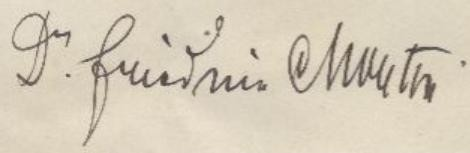 Dr. Friedrich Morton